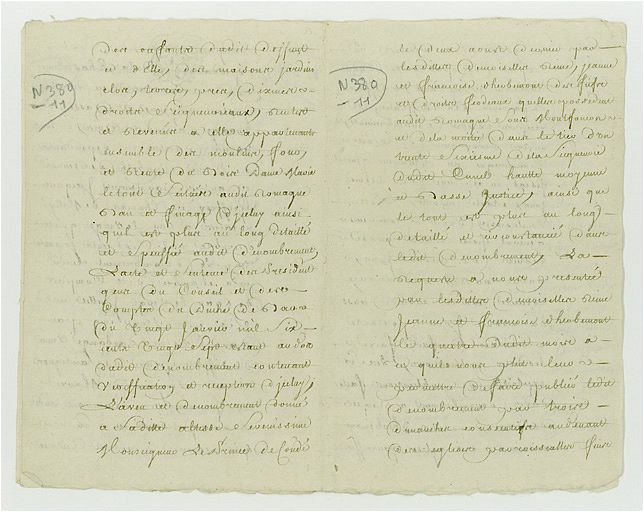 N 380
11
des enfants dudit deffunt
et d'elle, des maisons jardins
clos, terres, prez, dixmes
droits seigneuriaux, rentes
et revenus a elle appartenants
ensemble des moulins, four,
et du bois Dame Marie
le tout audit Romagne
ban et finage d'jceluy ainsi
qu'il est plus au long detaille
et audit denombrement,
L'acte et sentence des President
gens du Conseil et des
Comptes du Duché de Bar
du vingt Janvier mil six
cents vingt sept etant au dos
dudit denombrement contenant
veriffication et reception d'jceluy,
L'aveu et denombrement donné
a saditte altesse serenissime
Monseigneur Le Prince de Condé
N 380
11
le deux aoust dernier par
lesdittes demoiselles Anne, jeanne
et françoise d'heubemont des fiefs
et droits feodaux qu'elles possedent
audit Romagne sous Montfaucon
et de la mote dans le
et la seigneurie
dudit haute moyenne
et basse Justice, ainsi que
le tout est plus au long
detaillé et circonstancié dans
ledit denombrement, La
Requete a nous presentée
par lesdittes demoiselles Anne
Jeanne et françoise d'heubemont
le quatre dudit mois a
ce qu'il nous plut leur
permettre de faire publié ledit
denombrement par trois
dimanches consecutifs au devant
des eglises paroissialles